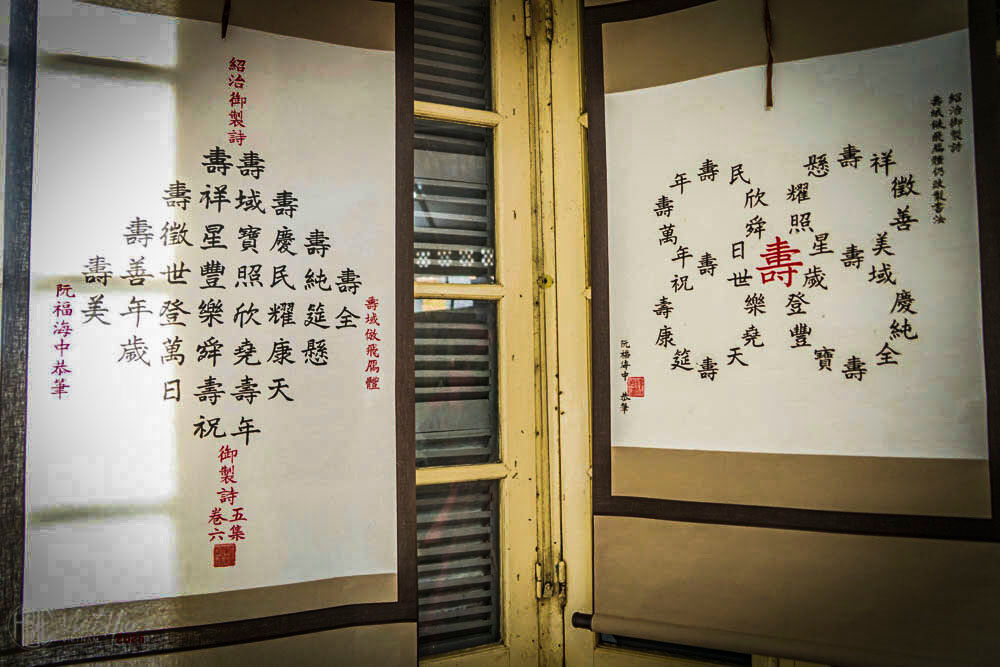 紹治御製詩
壽域倣飛鴈體
壽全
壽純筵懸
壽慶民耀康天
壽域寶照欣堯壽年
壽祥星豐樂舜壽祝
壽徵世登萬日
壽善年歲
壽美
阮福海中恭筆
御製詩
五集
卷六
紹治御製詩
倣飛鴈體仍改製書法
懸壽祥徵善美域慶純全壽寶豐登歲星照耀
壽
壽
民欣舜日世樂堯天壽筵康壽祝年萬壽年壽
壽
阮福海中 恭筆